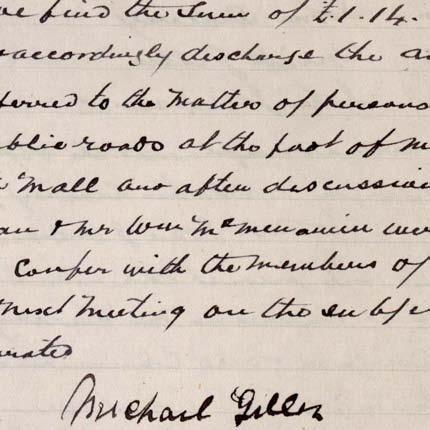 we find the Sum of £.1.14.
accordingly discharge the a
ferred to the Matter of persons
blic roads at the foot of M
Mall and after discussion
an & Mr Wm McMenamin were
Confer with the members of
next Meeting on the subje
Michael Gillen